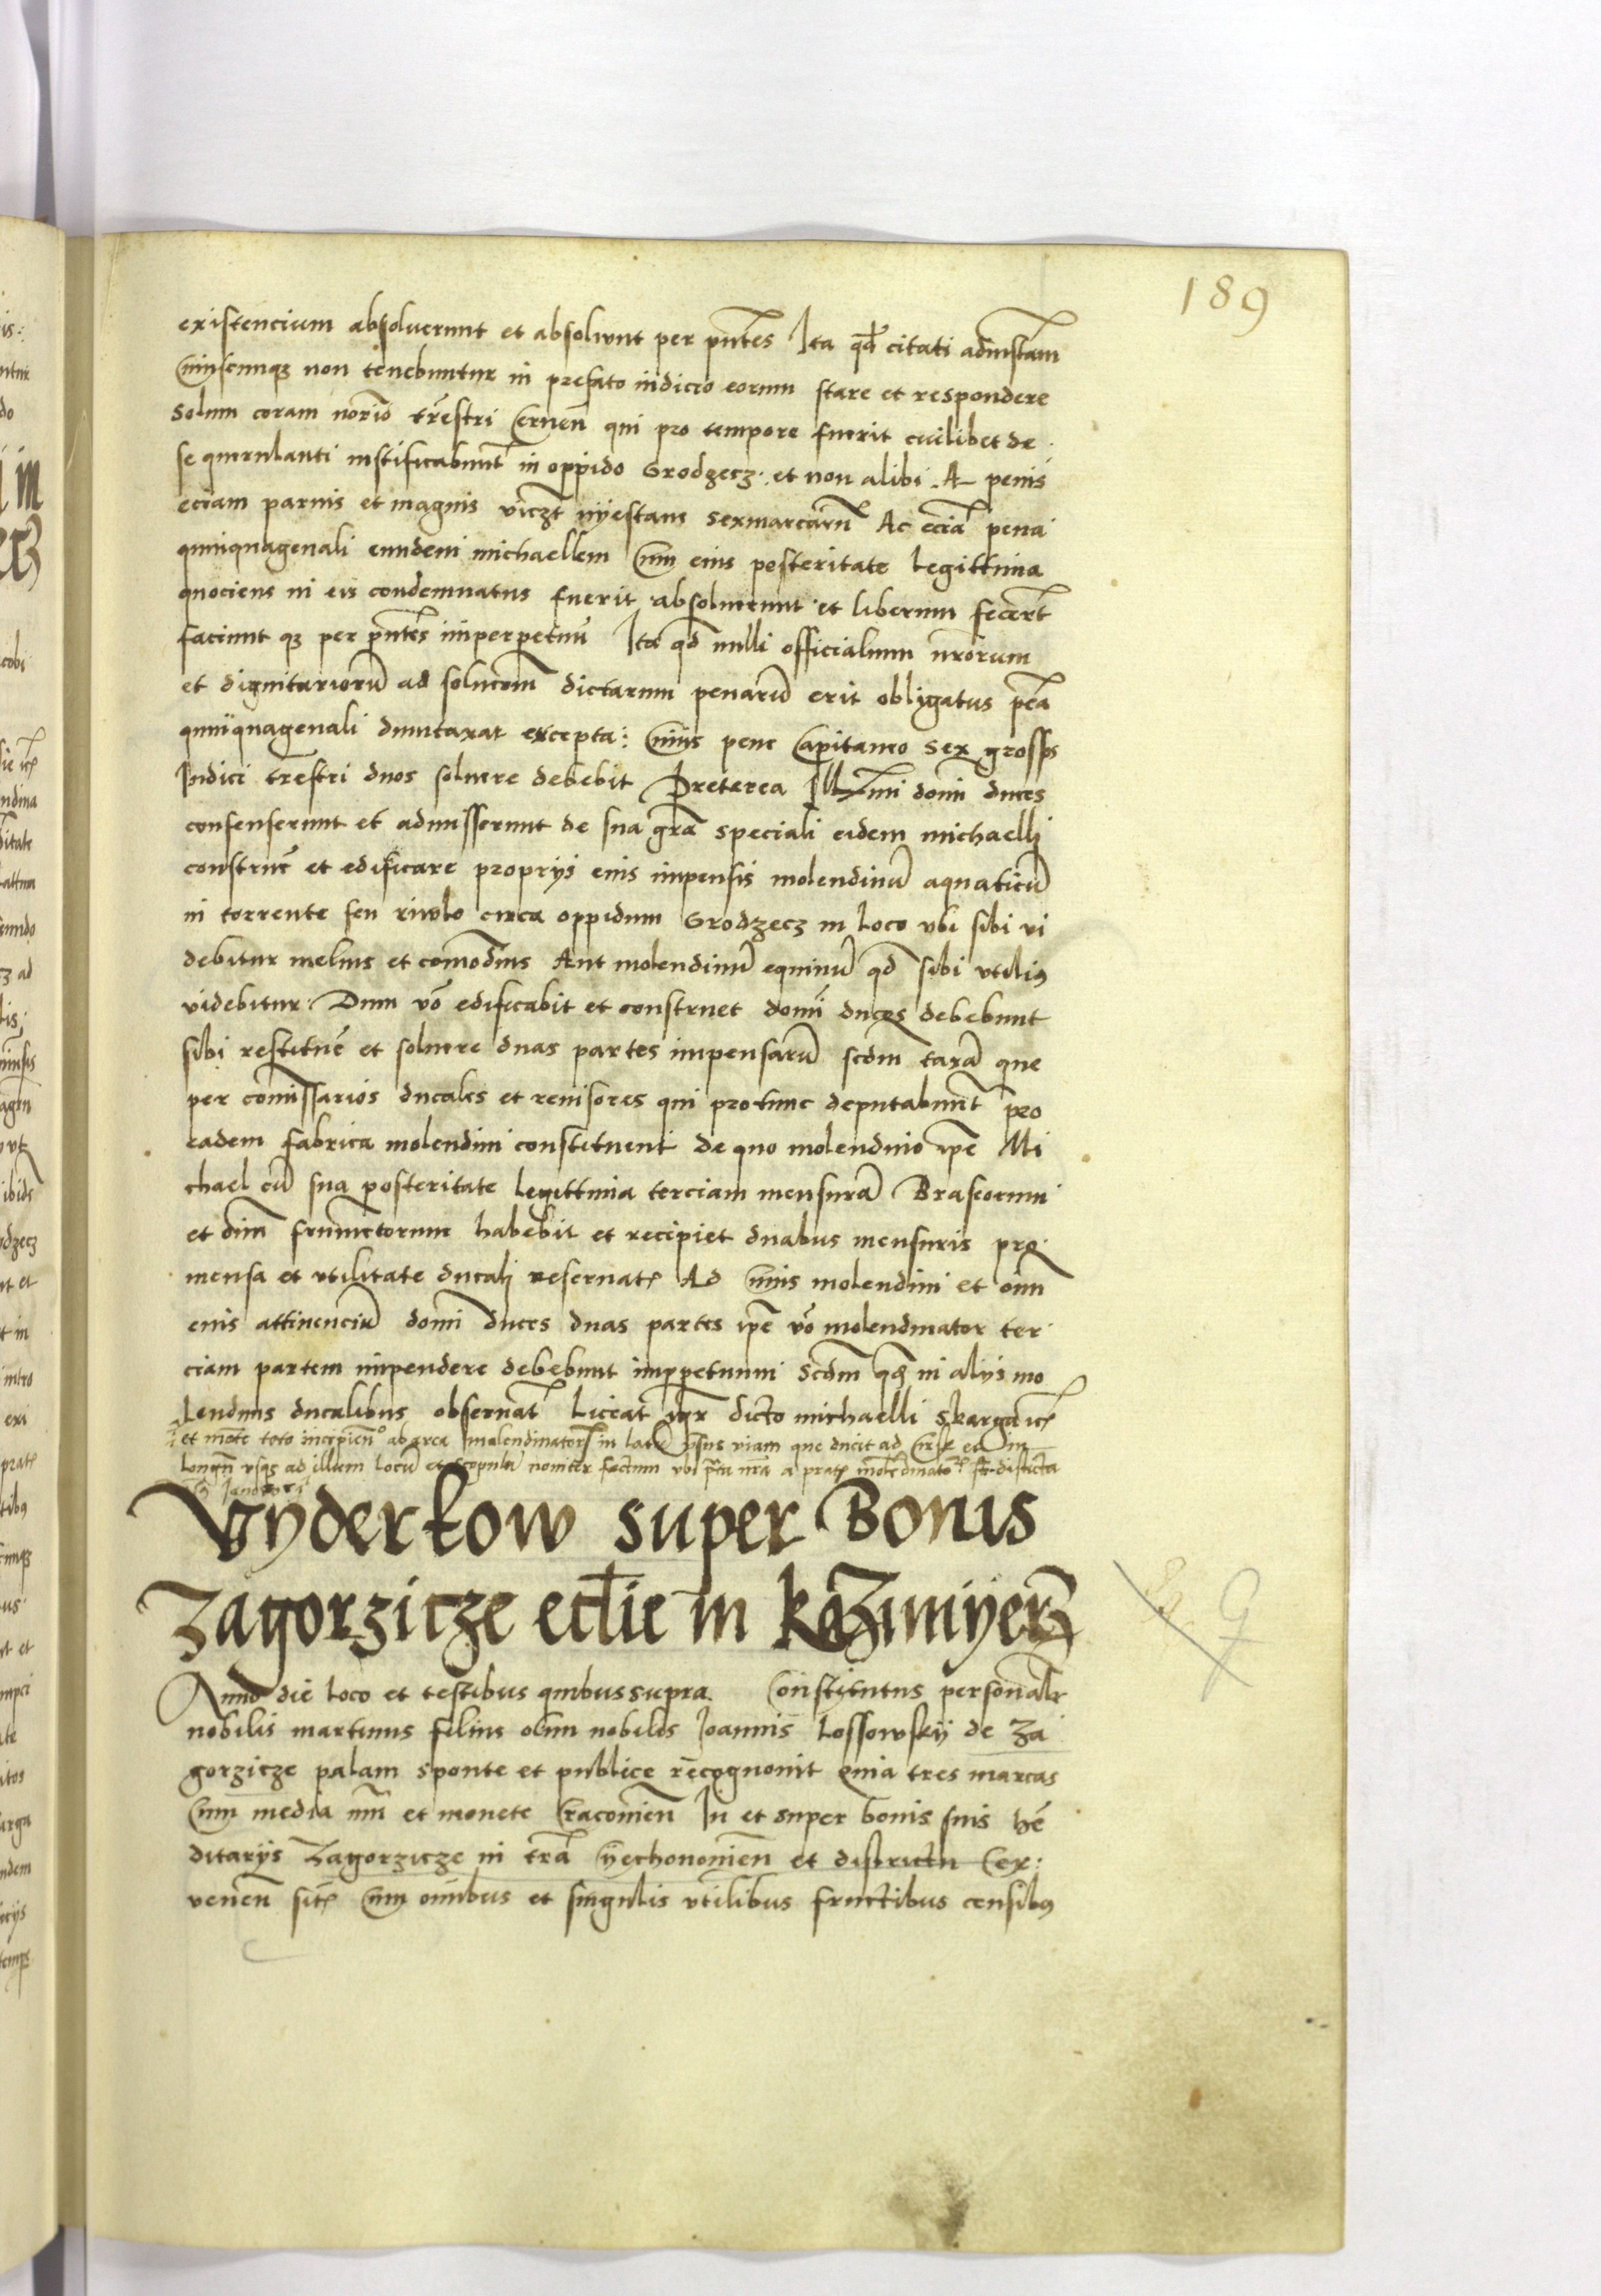 189
existencium absoluerunt et absolvunt per pntes Ita qd citati ad instam
cuiuscunqz non tenebuntur in prefato iudicio eorum stare et respondere
solum coram norio trestri Cernen qui pro tempore fuerit cuilibet de
se querulanti iustificabunt in oppido Grodzecz et non alibi. A penis
eciam paruis et magnis viczt nyestane sexmarcaru Ac ecia pena
quinquagenali eundem michaellem cum eius posteritate legittima
quociens in eis condemnatus fuerit absoluerunt et liberum fecert
faciunt qz per pntes imperpetuu Ita qd nulli officialium nrorum
et dignitarioru ad solucom dictarum penaru erit obligatus pea
quinquagenali duntaxat excepta: cuius pene Capitaneo sex grossos
Iudici trestri duos soluere debebit Preterea Illmi domi duces
consenserunt et admisserunt de sua gra speciali eidem michaelli
construe et edificare proprijs eius impensis molendinu aquaticu
in torrente seu riuolo circa oppidum Grodzecz in loco vbi sibi vi
debitur melius et comodius Aut molendinu equinu qd sibi vtilius
videbitur. Dum vo edificabit et construet domi duces debebunt
sibi restitue et soluere duas partes impensaru scdm taxa que
per comissarios ducales et reuisores qui protunc deputabunt pro
eadem fabrica molendini constituent de quo molendino ipe Mi
chael cu sua posteritate legittima terciam mensura Braseorum
et dim frumetorum habebit et recipiet duabus mensuris pro
mensa et vtilitate ducali reseruat Ad cuius molendini et oim
eius attinenciu domi duces duas partes ipe vo molendinator ter
ciam partem impendere debebunt imperpetuum Scdm qd in alijs mo
lendinis ducalibus obseruat Liceat dicto michaelli skarga
et mote toto incipien ab area molendinatoris in latu vsus viam que ducit ad
longu vsqz ad illum locu et scopulu nouiter factum vbi pta nra a prat molendinato distincta
Vyderkow super Bonis
Zagorzicze ecclie in Kazimyerz
Anno die loco et testibus quibus supra. Constitutus personalr
nobilis martinus filius olim nobilis Ioannis Lossowskij de Za
gorzicze palam sponte et publice recognouit quia tres marcas
cum media num et monete Cracouien In et super bonis suis he
ditarijs Zagorzicze in tra et districtu Cer
uenen sit cum omibus et singulis vtilibus fructibus censibus